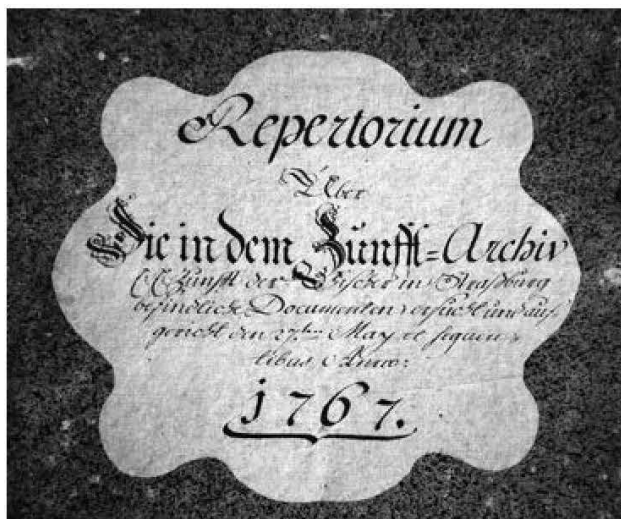 Repertorium
Über
Die in dem Zunfft=Archiv
E. E. Zunfft der Fischer in Straßburg
befindliche Documenten ersucht und auf
gericht den 27ten May et sequen
tibus Anno:
1767.